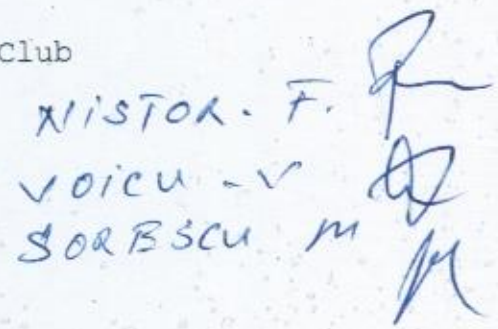 Club
NISTOR. F.
VOICU - V
SORBSCU M